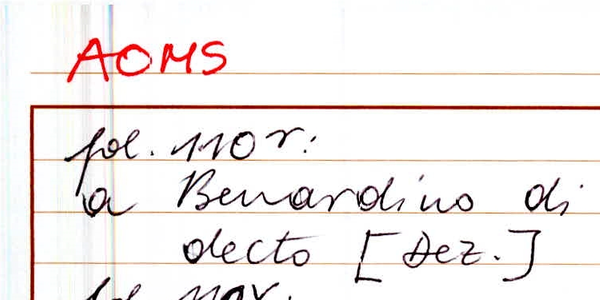 AOMS
fol. 110r:
a Benardino di
decto [Dez.]
fol. 110v.